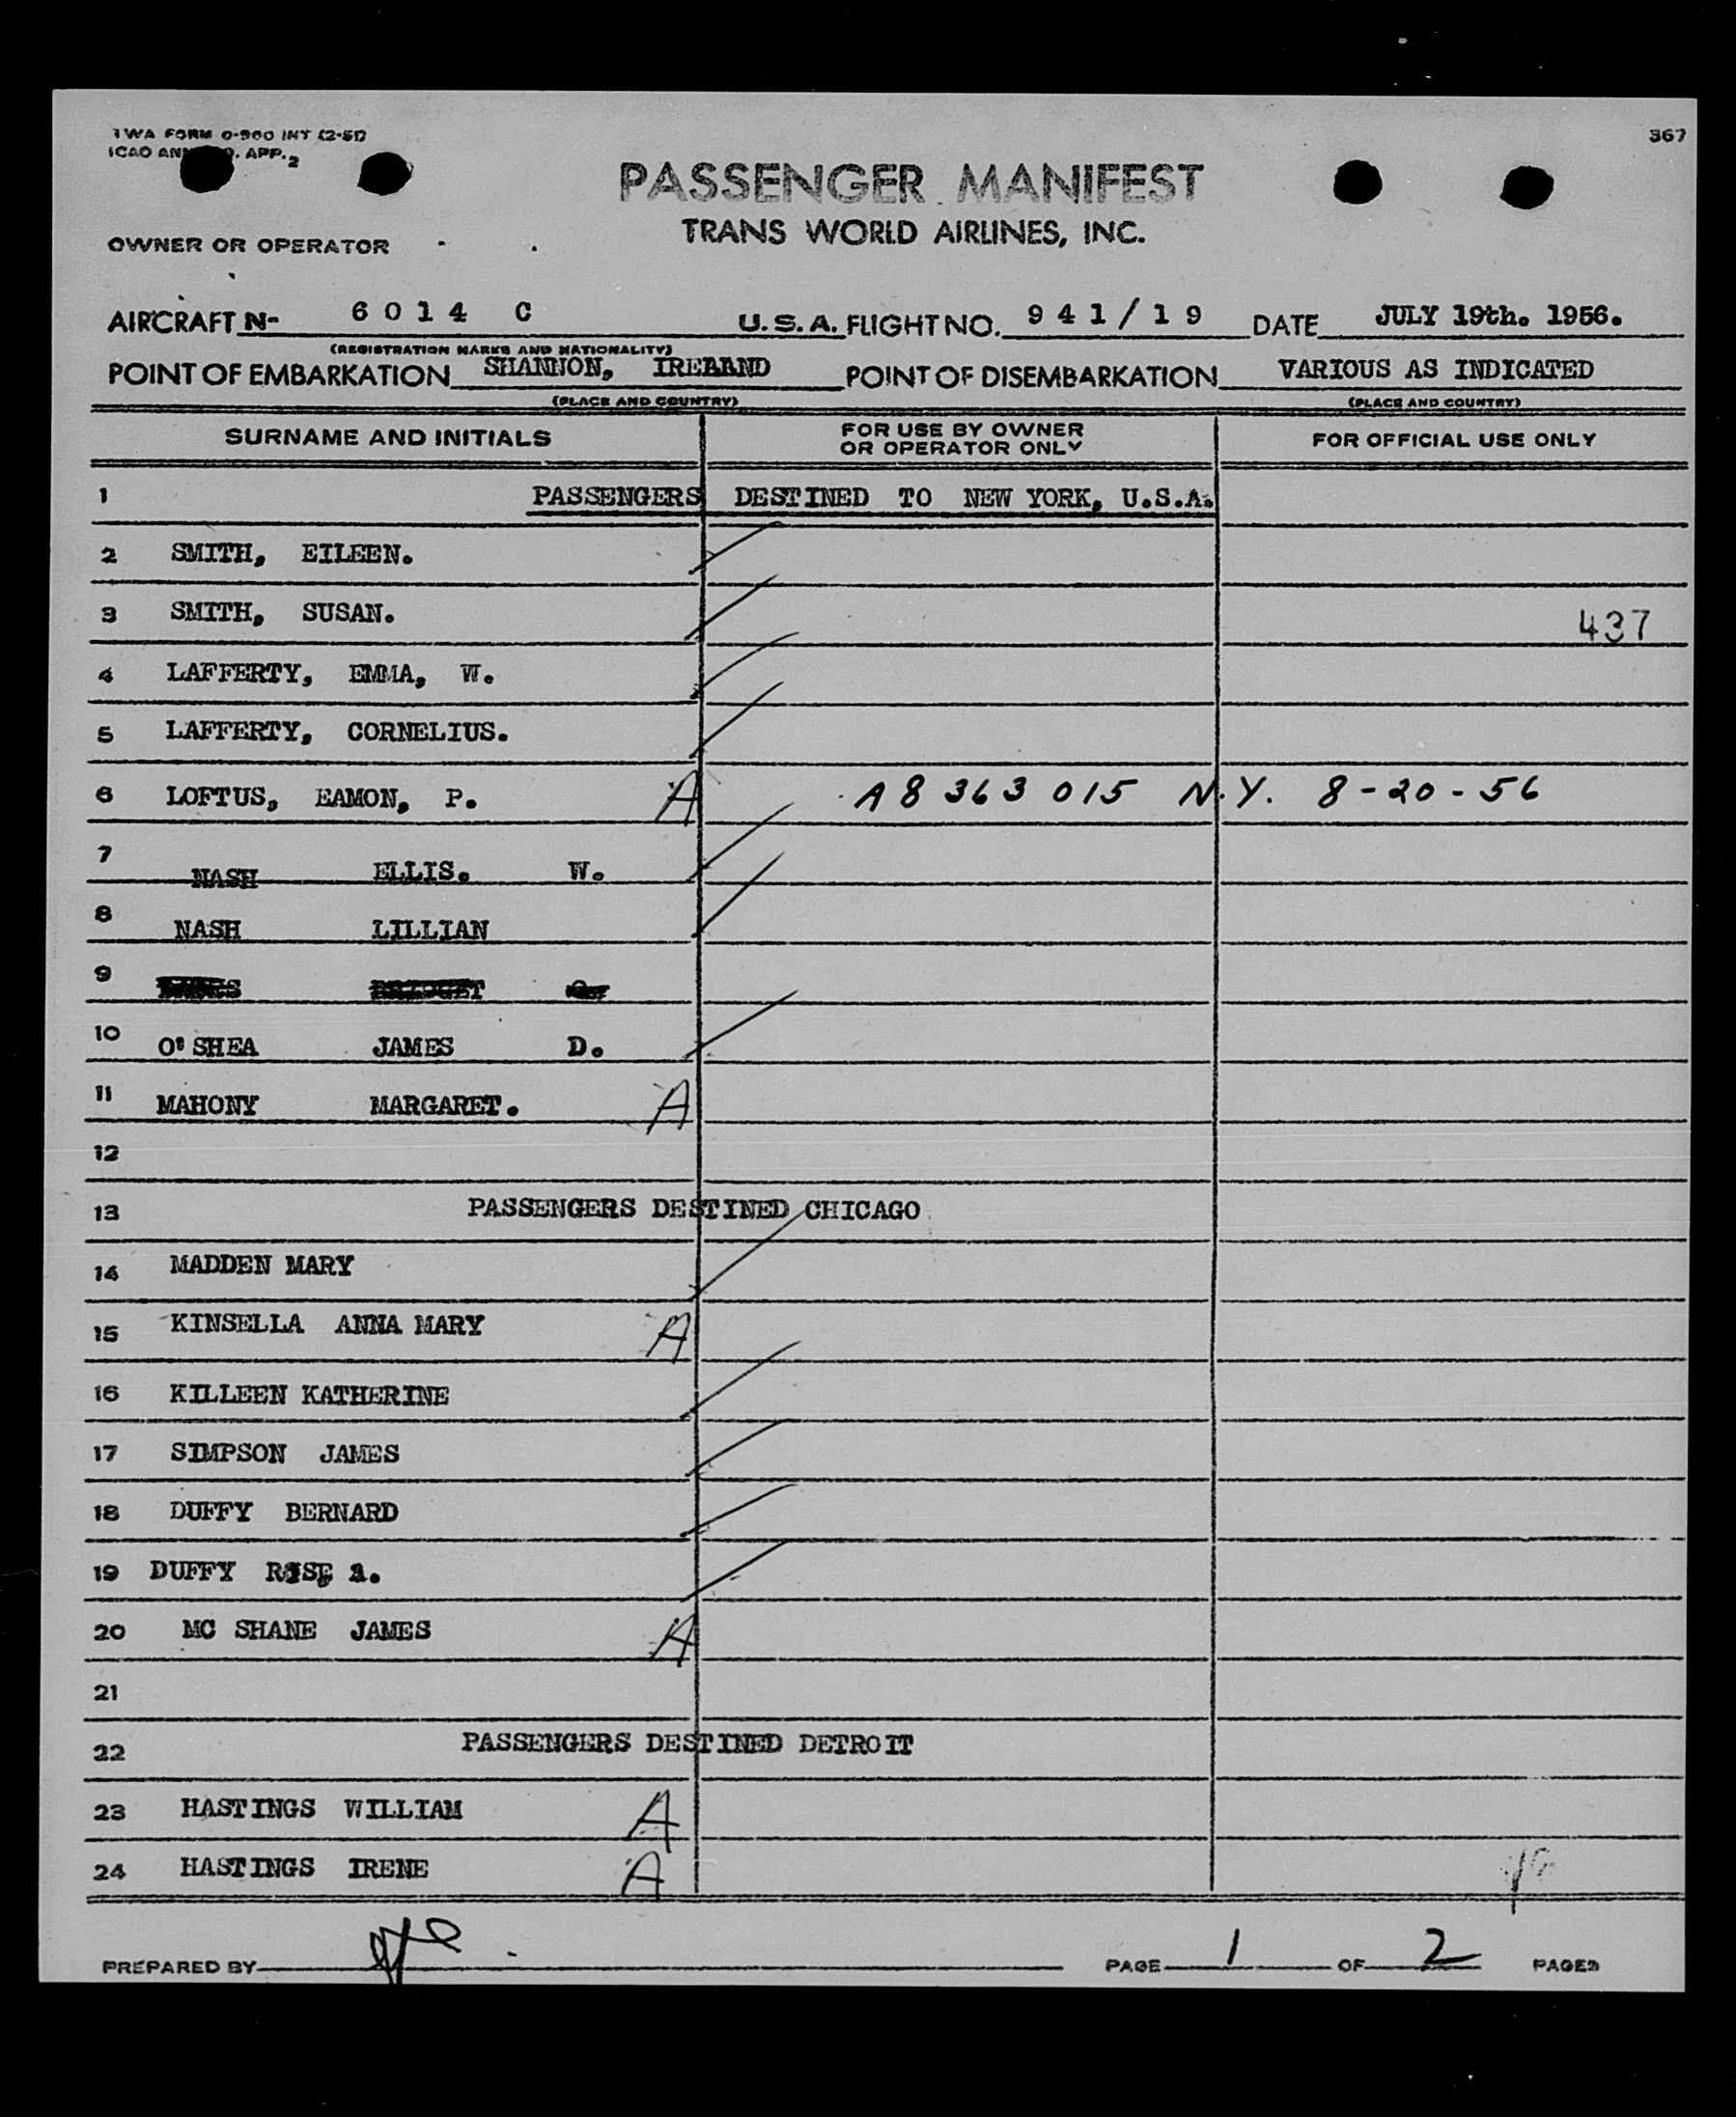 TWA FORM O-960 INT (2-51)
367
ICAO ANN 9, APP. 2
PASSENGER MANIFEST
TRANS WORLD AIRLINES, INC.
OWNER OR OPERATOR
AIRCRAFT N- 6014 C U.S.A. FLIGHT NO. 941/19 DATE JULY 19th. 1956.
(REGISTRATION MARKS AND NATIONALITY)
POINT OF EMBARKATION SHANNON, IRELAND POINT OF DISEMBARKATION VARIOUS AS INDICATED
(PLACE AND COUNTRY) (PLACE AND COUNTRY)
SURNAME AND INITIALS FOR USE BY OWNER OR OPERATOR ONLY FOR OFFICIAL USE ONLY
1 PASSENGERS DESTINED TO NEW YORK, U.S.A.
2 SMITH, EILEEN.
3 SMITH, SUSAN. 437
4 LAFFERTY, EMMA, W.
5 LAFFERTY, CORNELIUS.
6 LOFTUS, EAMON, P. A A8 363 015 N.Y. 8-20-56
7 NASH ELLIS. W.
8 NASH LILLIAN
9 BRIDGET
10 O'SHEA JAMES D.
11 MAHONY MARGARET. A
12
13 PASSENGERS DESTINED CHICAGO
14 MADDEN MARY
15 KINSELLA ANNA MARY A
16 KILLEEN KATHERINE
17 SIMPSON JAMES
18 DUFFY BERNARD
19 DUFFY ROSE A.
20 MC SHANE JAMES A
21
22 PASSENGERS DESTINED DETROIT
23 HASTINGS WILLIAM A
24 HASTINGS IRENE A
PREPARED BY PAGE 1 OF 2 PAGES